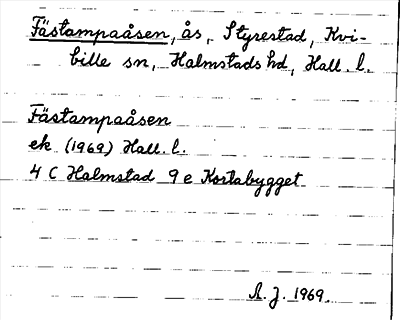 Fästampaåsen, ås, Styrestad, Kvi-
bille sn, Halmstads hd, Hall. l.
Fästampaåsen
ek (1969) Hall. l.
4 C Halmstad 9 e Kortabygget
A. J. 1969